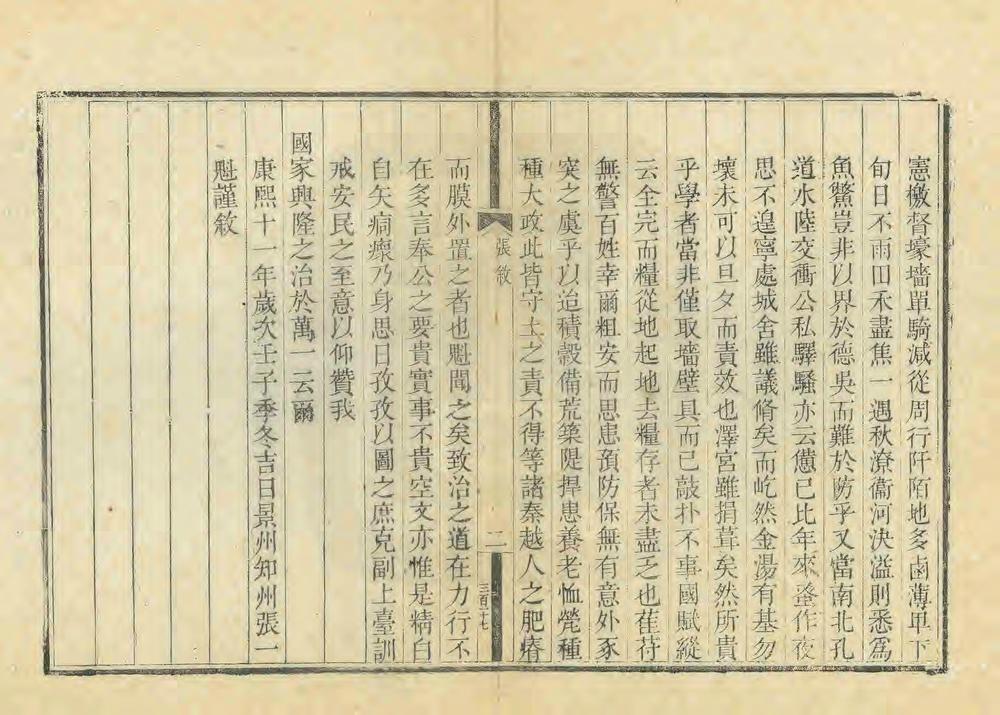 憲檄督壕墻單騎減從周行阡陌地多鹵薄卑下
旬日不雨田禾盡焦一遇秋潦衞河決溢則悉爲
魚鱉豈非以界於德吳而難於防乎又當南北孔
道水陸交衝公私驛騷亦云憊已比年來蚤作夜
思不遑寧處城舍雖議脩矣而屹然金湯有基勿
壞未可以旦夕而責效也澤宮雖捐葺矣然所貴
乎學者當非僅取墻壁具而已敲朴不事國賦縱
云全完而糧從地起地去糧存者未盡之也萑苻
無警百姓幸爾粗安而思患預防保無有意外豕
突之虞乎以迨積穀備荒築隄捍患養老恤煢種
種大政此皆守土之責不得等諸秦越人之肥瘠
張敘
二
而膜外置之者也魁聞之矣致治之道在力行不
在多言奉公之要貴實事不貴空文亦惟是精白
自矢痌瘝乃身思日孜孜以圖之庶克副上臺訓
戒安民之至意以仰贊我
國家興隆之治於萬一云爾
康熙十一年歲次壬子季冬吉日景州知州張一
魁謹敘